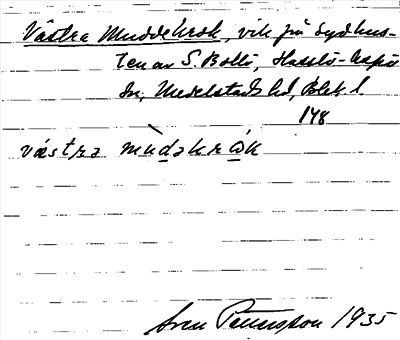 Västra Muddekrok, vik på sydkus-
ten av S. Bollö, Hasslö-Aspö
sn, Medelstads hd, Blek. l.
148
västra mùdəkrωk
Sven Pettersson 1935